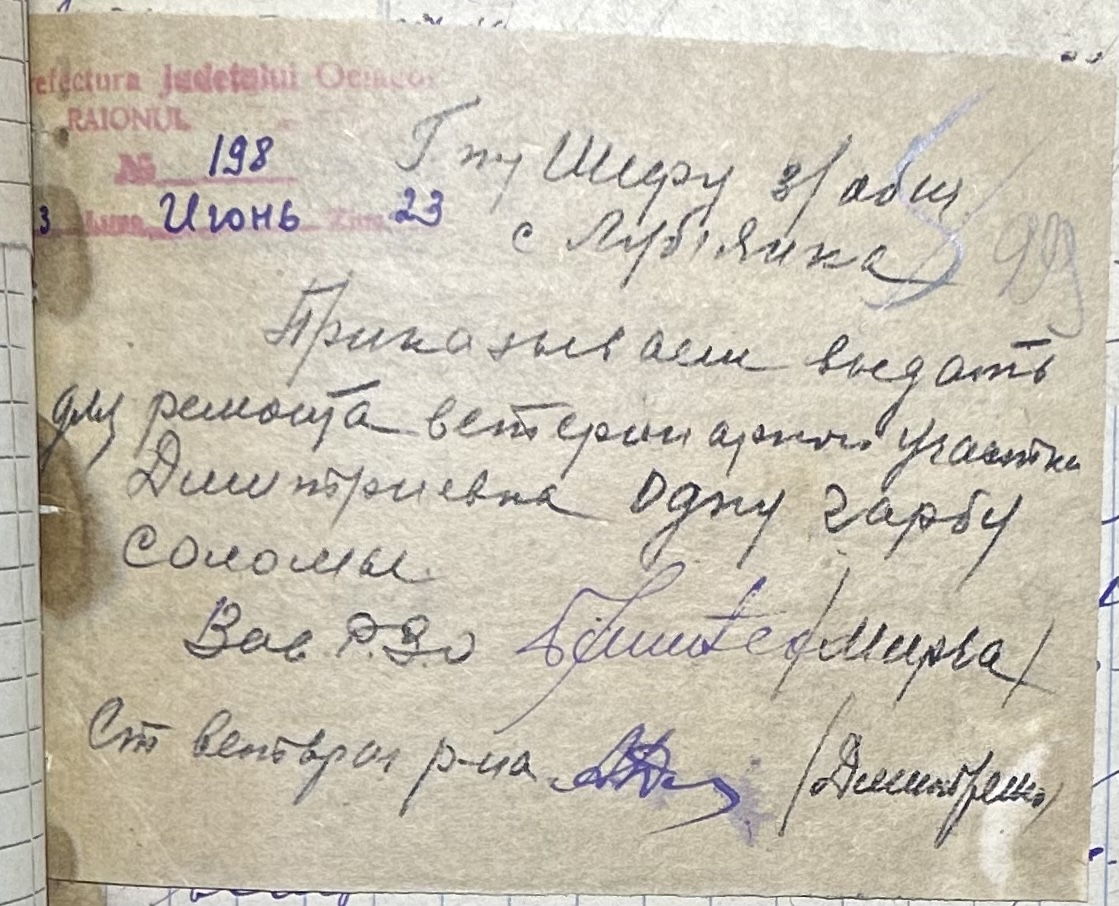 Prefectura Judetului Oceacov
RAIONUL
№ 198
3 Luna Июнь Ziua 23
Г-ну Шефу з/общ
с Лубянка
99
Приказываем выдать
для ремонта ветеринарного участка
Дмитриевка одну гарбу
соломы.
Зав Р.З.О /Мирза/
Ст ветврач р-на /Дмитренко/